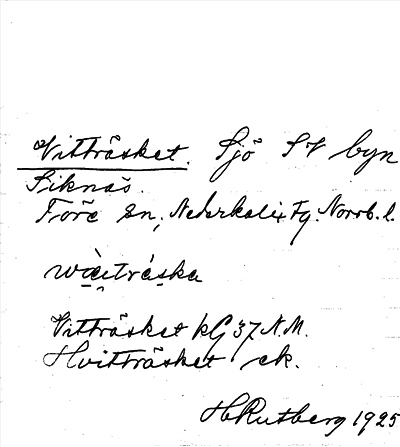 Vitträsket. Sjö SV byn
Siknäs.
Töre sn, Nederkalix Tg. Norrb. l.
Vitträsket kG 37 N.M.
Hvitträsket ek.
HRutberg 1925